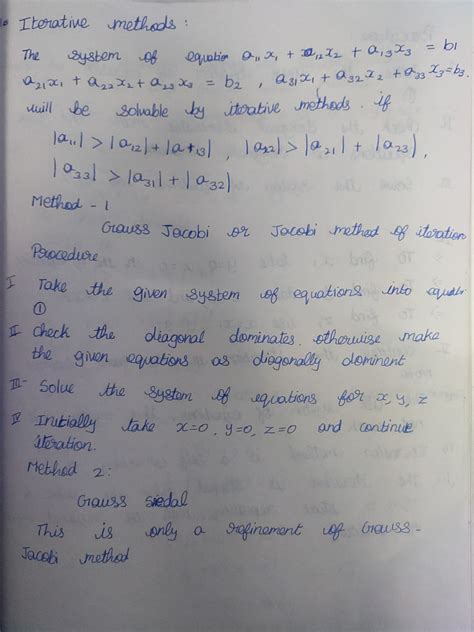 Iterative methods :
The system of equation a₁₁x₁ + a₁₂x₂ + a₁₃x₃ = b1
a₂₁x₁ + a₂₂x₂ + a₂₃x₃ = b₂ , a₃₁x₁ + a₃₂x₂ + a₃₃x₃ = b₃.
will be solvable by iterative methods. if
|a₁₁| > |a₁₂| + |a₁₃| , |a₂₂| > |a₂₁| + |a₂₃| ,
|a₃₃| > |a₃₁| + |a₃₂|
Method - 1
Gauss Jacobi or Jacobi method of iteration
Procedure
I Take the given system of equations into
①
II Check the diagonal dominates. otherwise make
the given equations as diagonally dominent
III- Solve the system of equations for x, y, z
IV Initially take x=0, y=0, z=0 and continue
iteration.
Method 2 :
Gauss siedal
This is only a refinement of Gauss-
Jacobi method